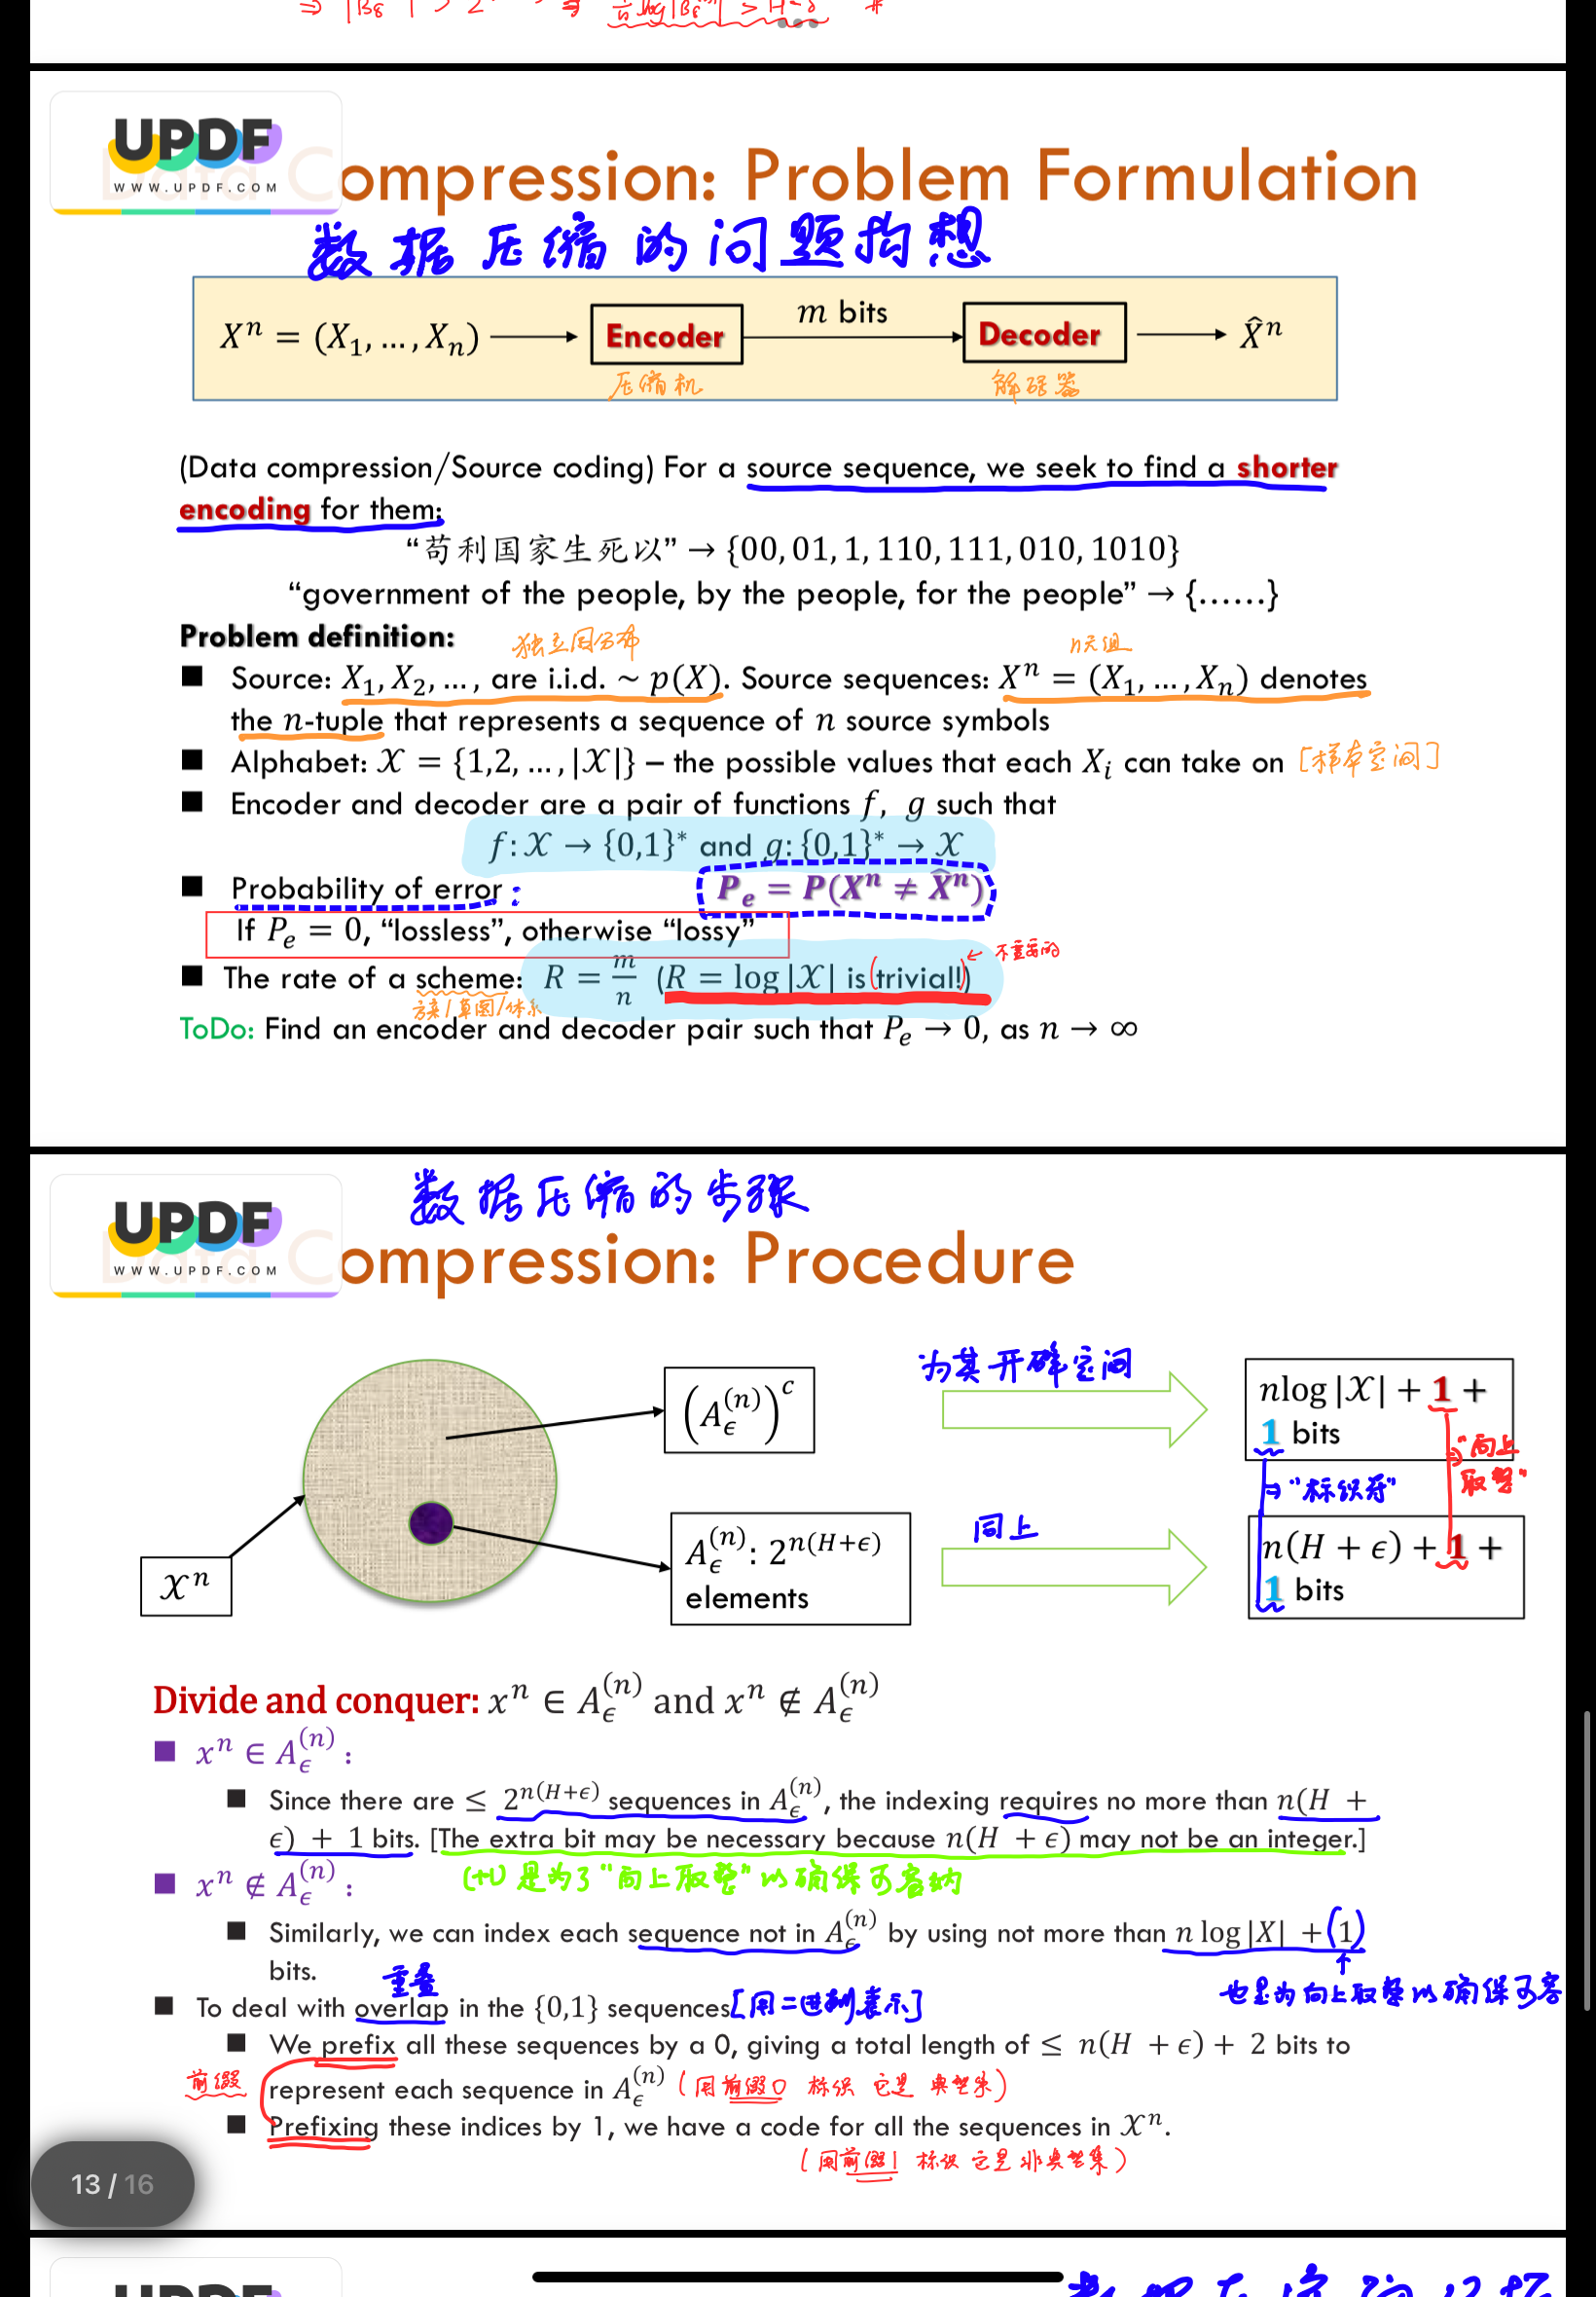 UPDF
WWW.UPDF.COM
Data Compression: Problem Formulation
数据压缩的问题构想
Xⁿ = (X₁, …, Xₙ)
Encoder
m bits
Decoder
X̂ⁿ
压缩机
解码器
(Data compression/Source coding) For a source sequence, we seek to find a shorter
encoding for them:
“苟利国家生死以” → {00, 01, 1, 110, 111, 010, 1010}
“government of the people, by the people, for the people” → {……}
Problem definition:
独立同分布
n元组
■ Source: X₁, X₂, …, are i.i.d. ~ p(X). Source sequences: Xⁿ = (X₁, …, Xₙ) denotes
the n-tuple that represents a sequence of n source symbols
■ Alphabet: 𝒳 = {1,2, …, |𝒳|} – the possible values that each Xᵢ can take on [样本空间]
■ Encoder and decoder are a pair of functions f, g such that
f: 𝒳 → {0,1}* and g: {0,1}* → 𝒳
■ Probability of error : Pₑ = P(Xⁿ ≠ X̂ⁿ)
If Pₑ = 0, “lossless”, otherwise “lossy”
■ The rate of a scheme: R = m/n (R = log |𝒳| is (trivial!)) ← 不重要的
方案/草图/体系
ToDo: Find an encoder and decoder pair such that Pₑ → 0, as n → ∞
数据压缩的步骤
UPDF
WWW.UPDF.COM
Data Compression: Procedure
为其开辟空间
(A_ϵ^(n))^c
nlog |𝒳| + 1 +
1 bits
⇒ “向上
取整”
⇒ “标识符”
同上
A_ϵ^(n): 2^{n(H+ϵ)}
elements
n(H + ϵ) + 1 +
1 bits
𝒳ⁿ
Divide and conquer: xⁿ ∈ A_ϵ^(n) and xⁿ ∉ A_ϵ^(n)
■ xⁿ ∈ A_ϵ^(n) :
■ Since there are ≤ 2^{n(H+ϵ)} sequences in A_ϵ^(n), the indexing requires no more than n(H +
ϵ) + 1 bits. [The extra bit may be necessary because n(H + ϵ) may not be an integer.]
(+1) 是为了“向上取整”以确保可容纳
■ xⁿ ∉ A_ϵ^(n) :
■ Similarly, we can index each sequence not in A_ϵ^(n) by using not more than n log |X| + (1)
bits.
重叠
也是为向上取整以确保可容
■ To deal with overlap in the {0,1} sequences [用二进制表示]
■ We prefix all these sequences by a 0, giving a total length of ≤ n(H + ϵ) + 2 bits to
前缀
represent each sequence in A_ϵ^(n) (用前缀0 标识 它是 典型集)
■ Prefixing these indices by 1, we have a code for all the sequences in 𝒳ⁿ.
(用前缀1 标识 它是 非典型集)
13 / 16